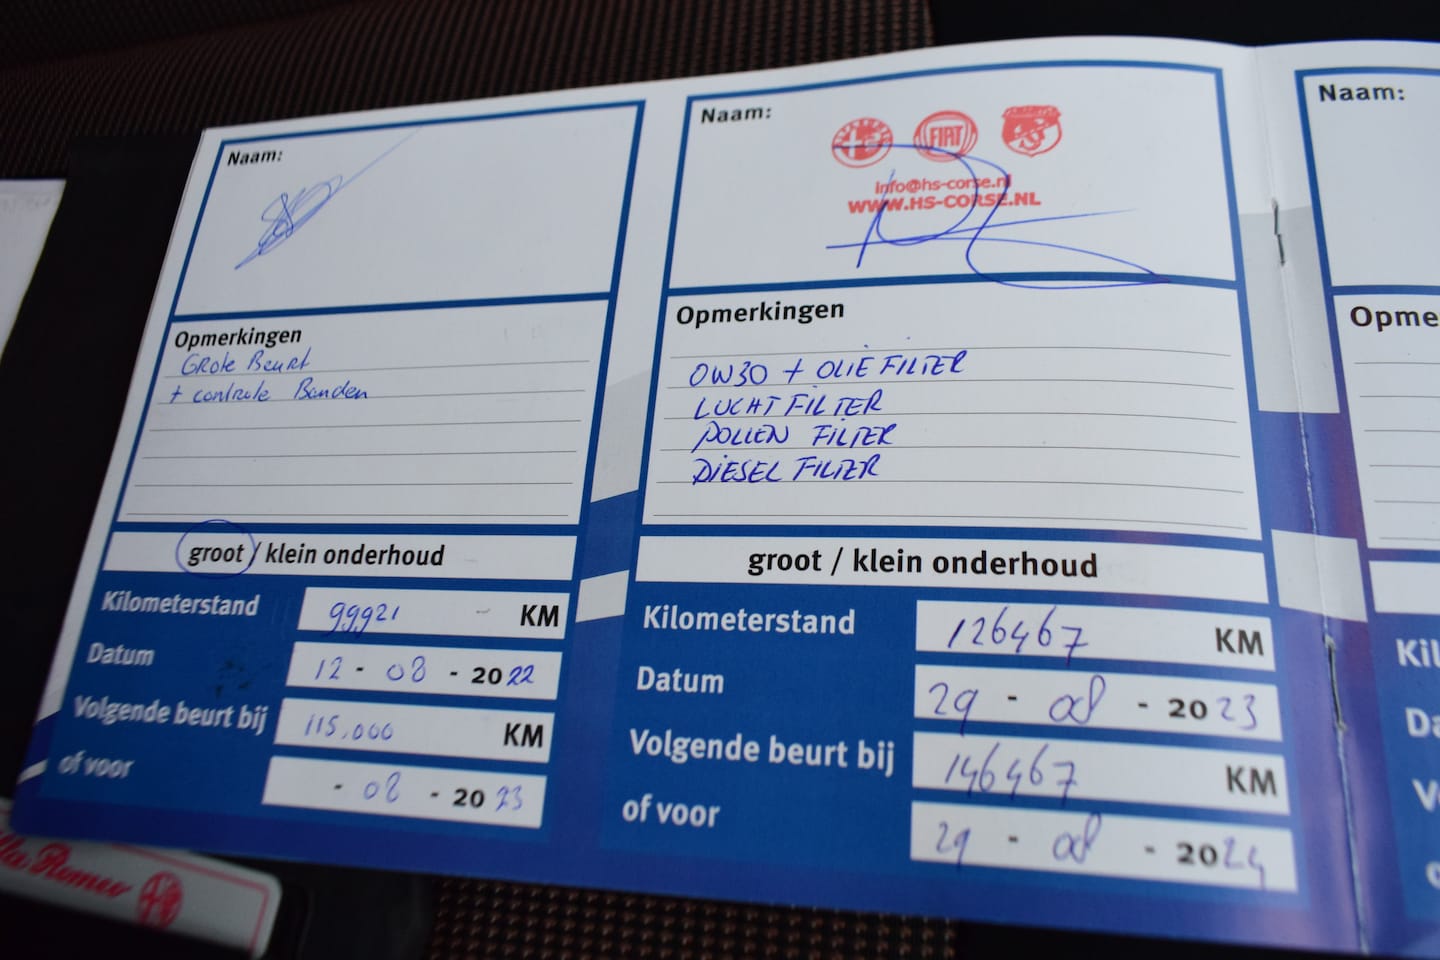 Naam:
Opmerkingen
Grote Beurt
+ controle Banden
groot / klein onderhoud
Kilometerstand 99921 - KM
Datum 12 - 08 - 2022
Volgende beurt bij 115.000 KM
of voor - 08 - 2023
Naam:
FIAT
info@hs-corse.nl
WWW.HS-CORSE.NL
Opmerkingen
OW30 + OLIE FILTER
LUCHT FILTER
POLLEN FILTER
DIESEL FILTER
groot / klein onderhoud
Kilometerstand 126467 KM
Datum 29 - 08 - 2023
Volgende beurt bij 146467 KM
of voor 29 - 08 - 2024
Naam:
Opme
Kil
Da
V
o
lla Romeo